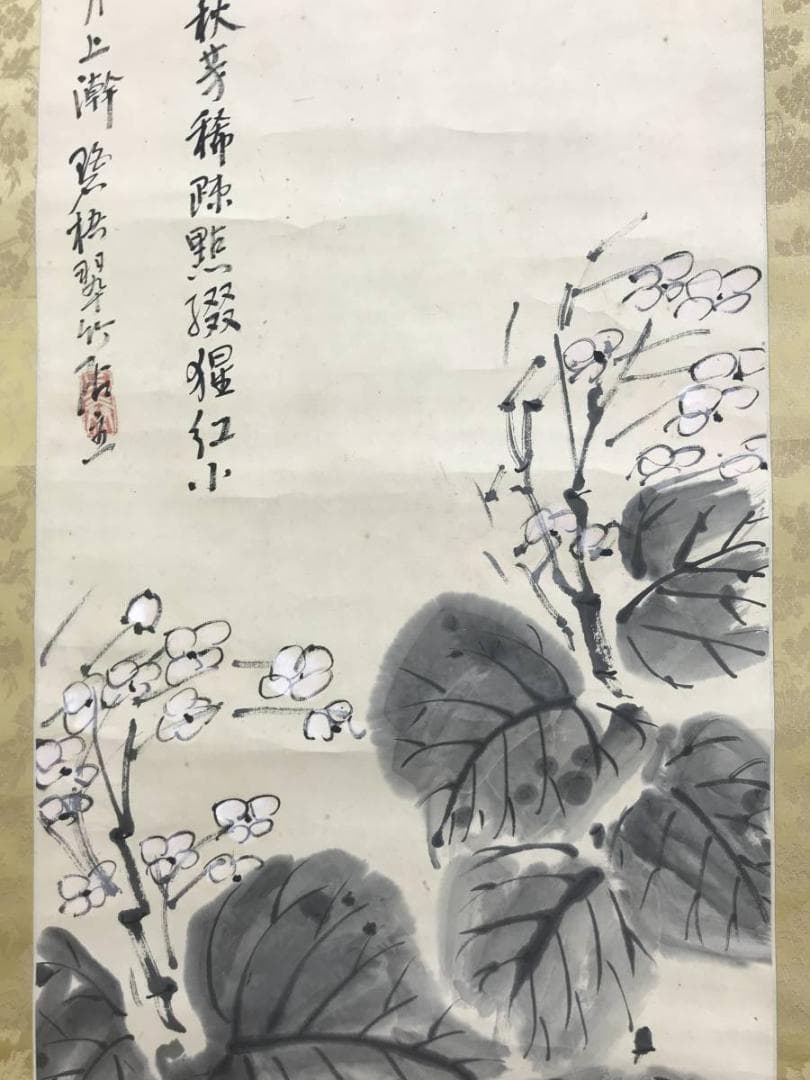 秋芳稀疎點綴猩紅小
月上澣 碧梧翠竹居